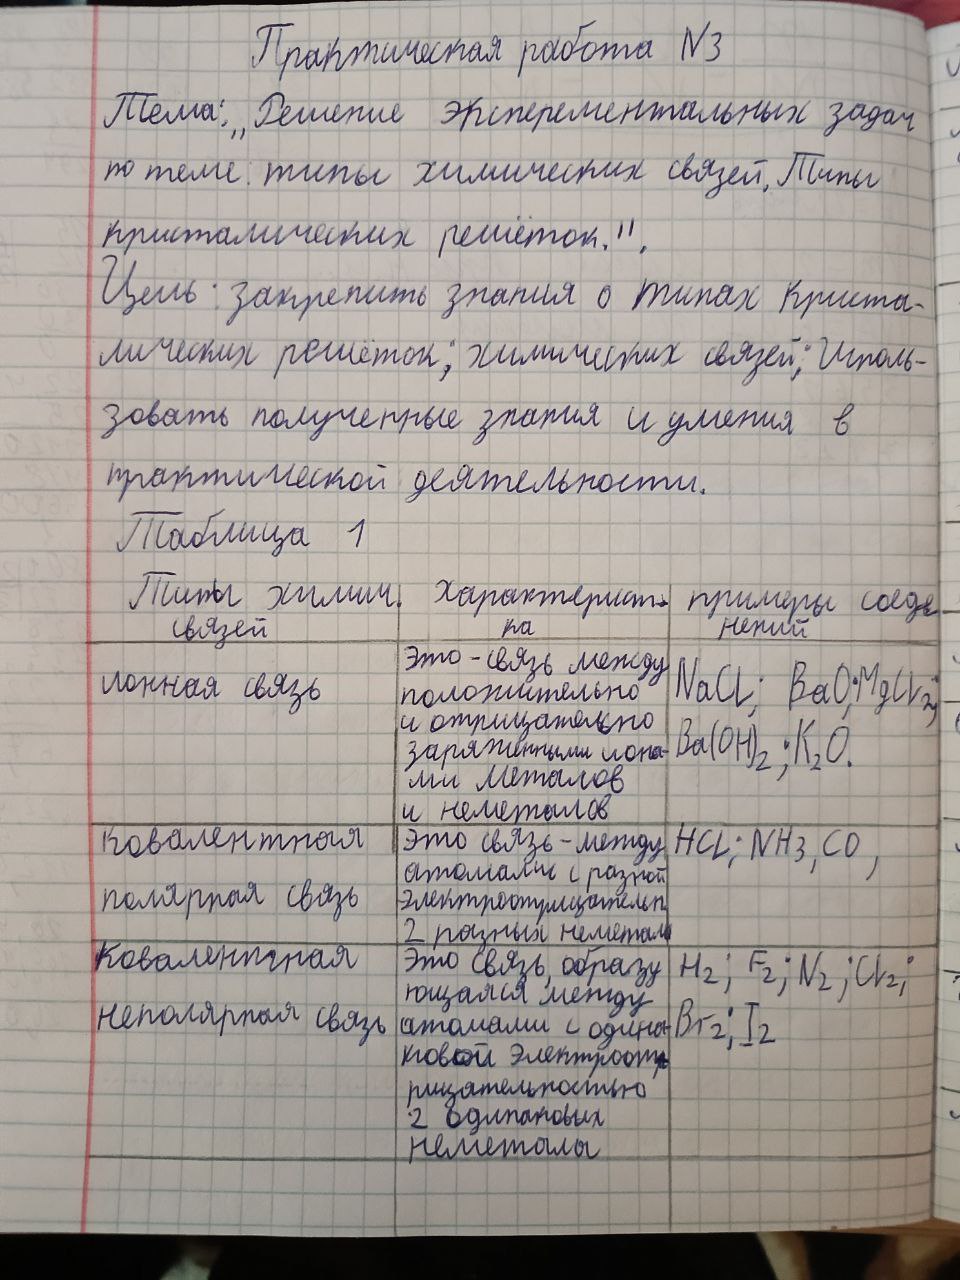 Практическая работа N3
Тема: „Решение эксперементальных задач
по теме: типы химических связей. Типы
кристалических решёток.".
Цель: закрепить знания о типах криста-
лических решёток; химических связей; Исполь-
зовать полученные знания и умения в
практической деятельности.
Таблица 1
Типы химич. связей
Характерист- ка
примеры соеде нений
ионная связь
Это - связь между
положительно
и отрицательно
заряженными иона-
ми металов
и неметалов
NaCl; BaO; MgCl2;
Ba(OH)2; K2O.
Ковалентная
полярная связь
Это связь - между
атомами с разной
электроотрицательн
2 разных неметал
HCl; NH3, CO,
Ковалентная
неполярная связь
Это связь, образу
ющаяся между
атомами с одина-
ковой электроот
рицательностью
2 одинаковых
неметалы
H2; F2; N2; Cl2;
Br2; I2